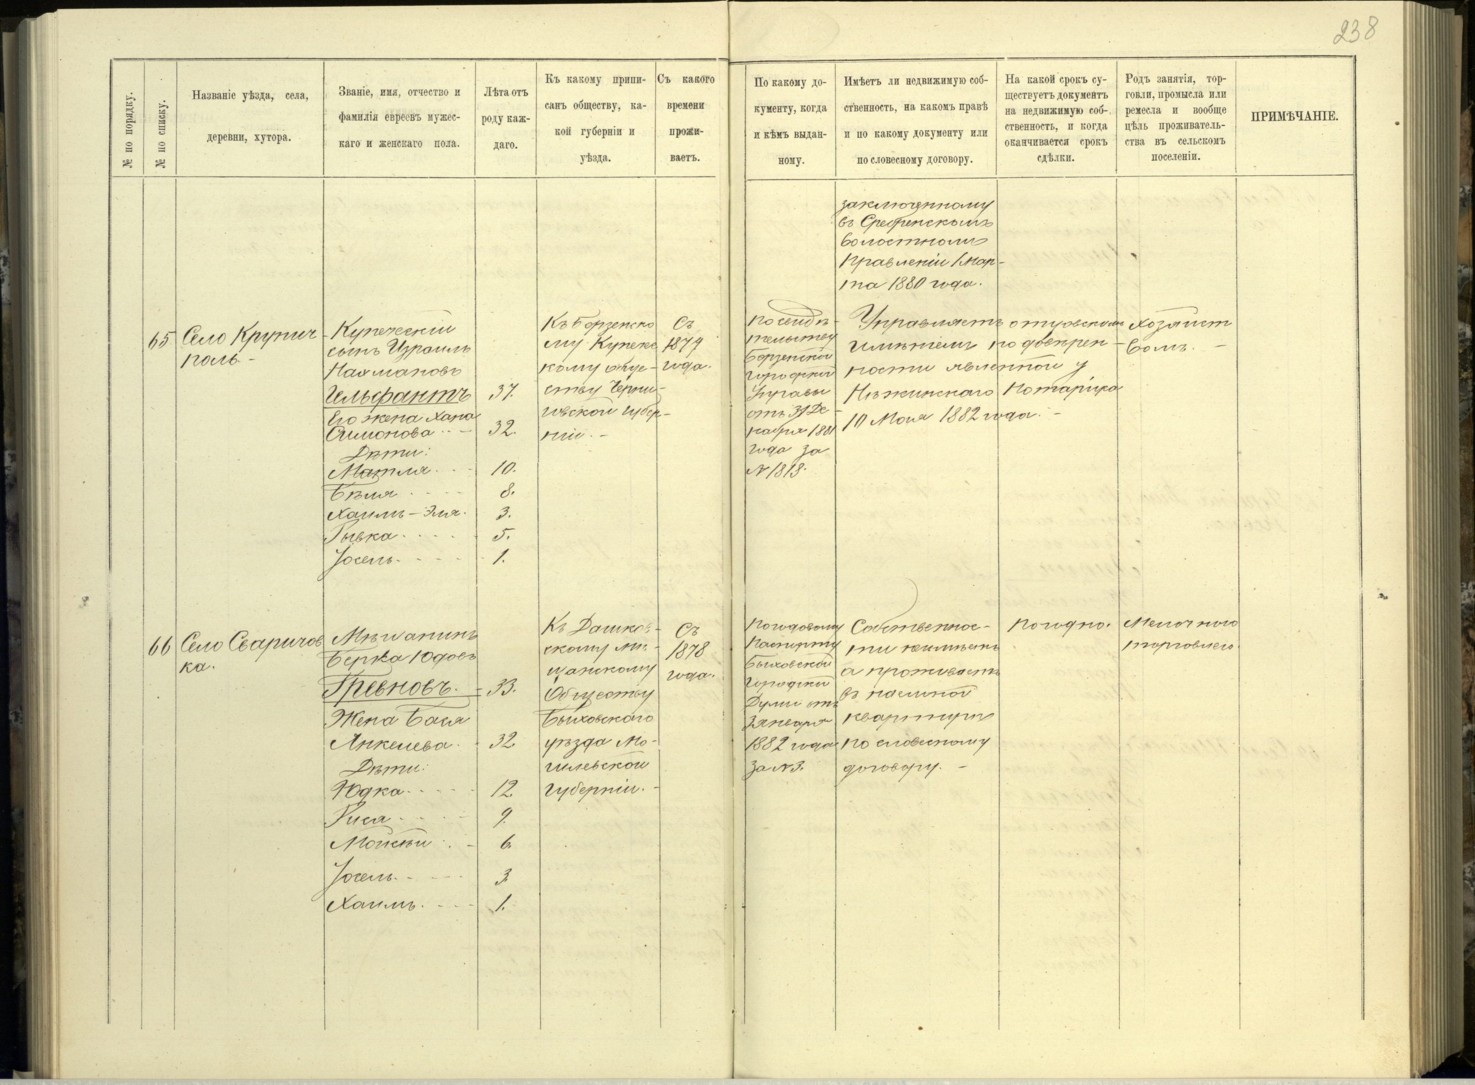 238
№ по порядку.
№ по списку.
Названіе уѣзда, села,
деревни, хутора.
Званіе, имя, отчество и
фамилія евреевъ мужес-
каго и женскаго пола.
Лѣта отъ
роду каж-
даго.
Къ какому припи-
санъ обществу, ка-
кой губерніи и
уѣзда.
Съ какого
времени
прожи-
ваетъ.
По какому до-
кументу, когда
и кѣмъ выдан-
ному.
Имѣетъ ли недвижимую соб-
ственность, на какомъ правѣ
и по какому документу или
по словесному договору.
На какой срокъ су-
ществуетъ документъ
на недвижимую соб-
ственность, и когда
оканчивается срокъ
сдѣлки.
Родъ занятія, тор-
говли, промысла или
ремесла и вообще
цѣль проживатель-
ства въ сельскомъ
поселеніи.
ПРИМѢЧАНІЕ.
заключенному
въ Сребренскомъ
волостномъ
Правленіи 1 мар-
та 1880 года.
65
Село Крупич-
поль
Купеческій
сынъ Израиль
Нахмановъ
Гельфантъ
37.
Его жена Хана
Симонова
32.
Дѣти:
Матля
10.
Бѣля
8.
Хаимъ-Эля.
3.
Рывка
5.
Іосель
1.
Къ Борзенско
му Купечес
кому обще-
ству Черни-
говской губер-
ніи.
Съ
1879
года.
По свидѣ-
тельству
Борзенской
городской
Управы
отъ 31 Де-
кабря 1881
года за
№ 1813.
Управляетъ отцовскимъ
имѣніемъ по довѣрен-
ности явленной у
Нѣжинскаго Нотаріуса
10 Мая 1882 года.
Хозяйст
вомъ.
66
Село Сваричов
ка.
Мѣщанинъ
Берка Юдовъ
Гревновъ.
33.
Жена Бася
Янкелева
32
Дѣти:
Юдка
12
Риса
9
Мойсѣй
6
Іосель
3
Хаимъ
1.
Къ Дашков-
скому мѣ-
щанскому
Обществу
Быховскаго
уѣзда Мо-
гилевской
губерніи.
Съ
1878
года.
По годовому
паспорту
Быховской
городской
Думы отъ
2 января
1882 года
за № 3.
Собственнос-
ти неимѣетъ
а проживаетъ
въ наемной
квартирѣ
по словесному
договору.
Погодно.
Мелочною
торговлею